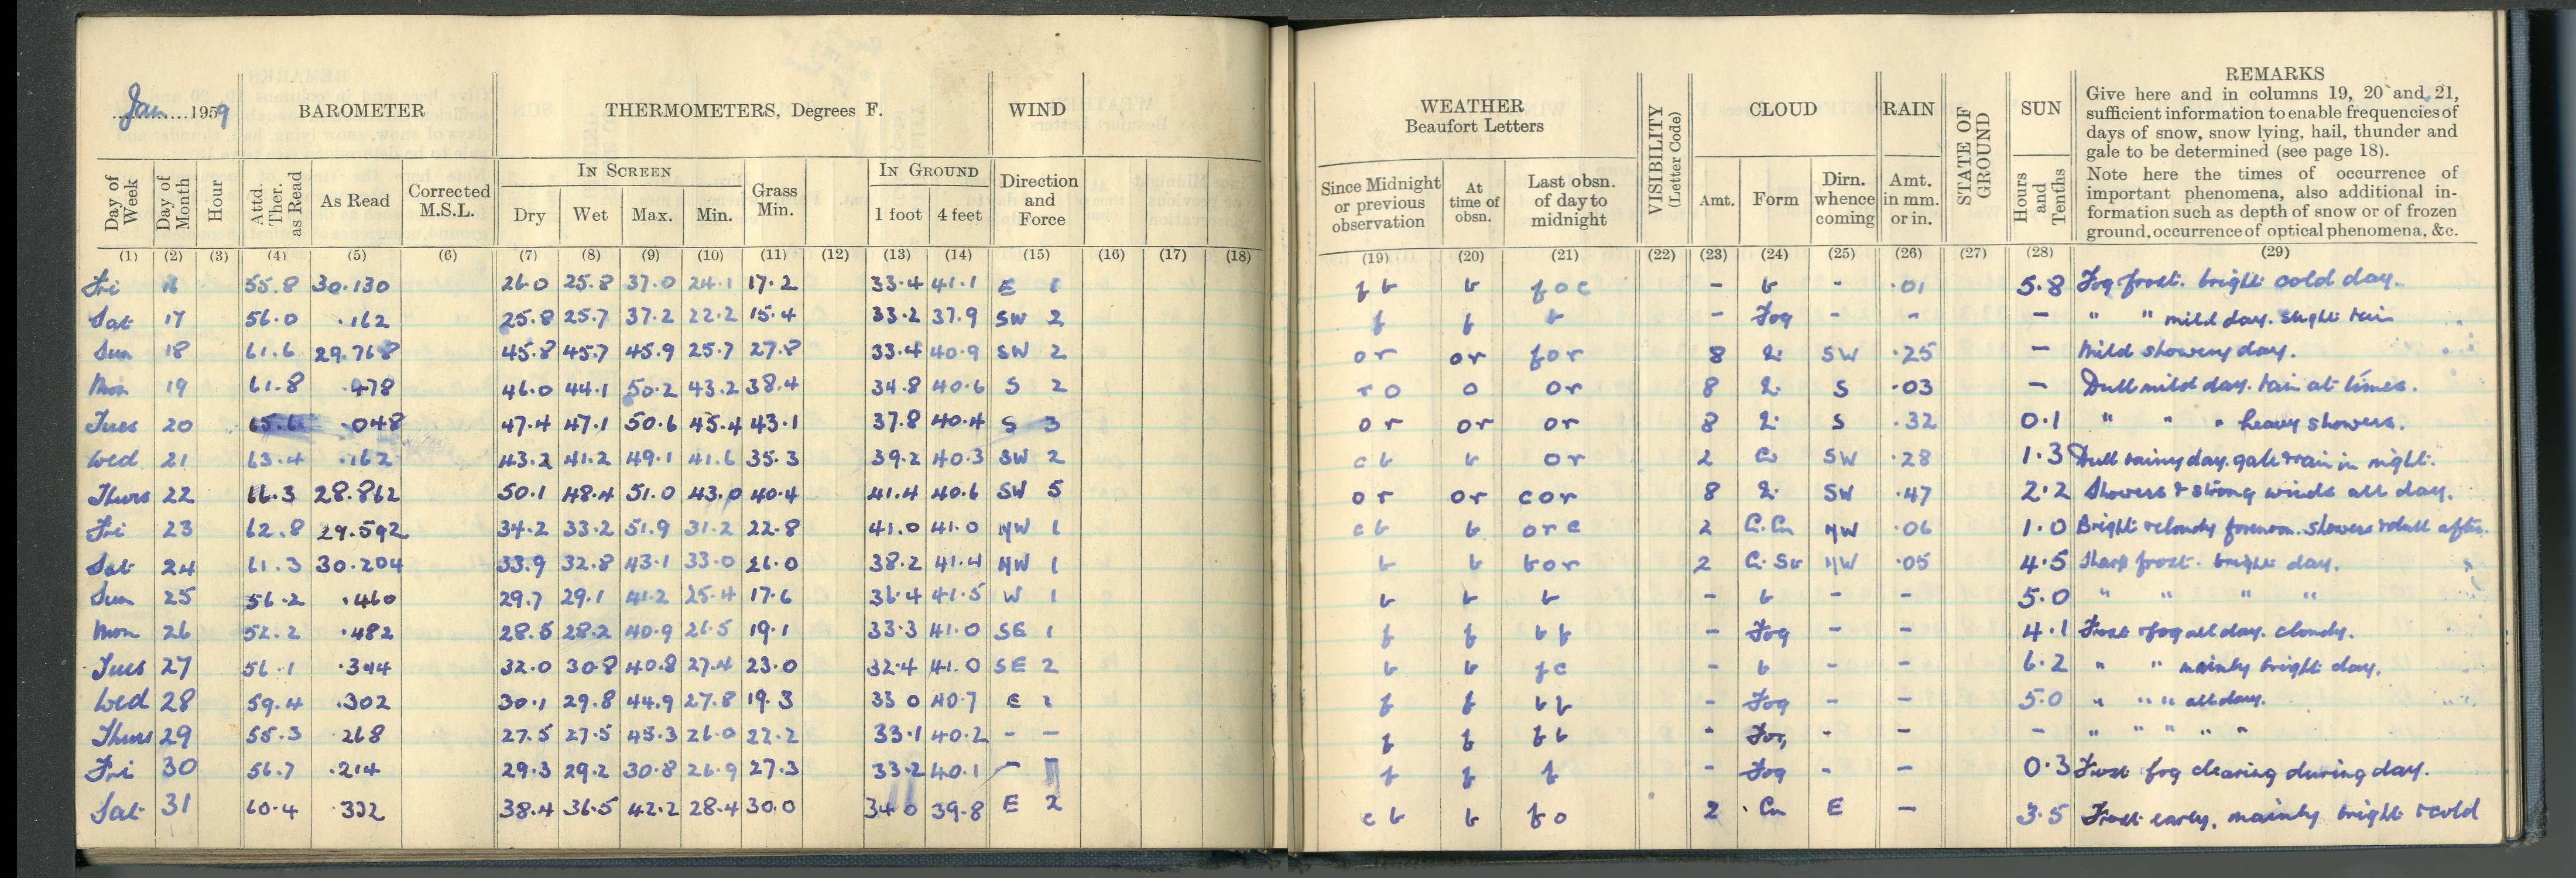 Jan 1959 BAROMETER THERMOMETERS, Degrees F. WIND
Day of Week Day of Month Hour Attd. Ther. as Read As Read Corrected M.S.L. IN SCREEN Dry Wet Max. Min. Grass Min. IN GROUND 1 foot 4 feet Direction and Force
(1) (2) (3) (4) (5) (6) (7) (8) (9) (10) (11) (12) (13) (14) (15) (16) (17) (18)
Fri 16 55.8 30.130 26.0 25.8 37.0 24.1 17.2 33.4 41.1 E 1
Sat 17 56.0 .162 25.8 25.7 37.2 22.2 15.4 33.2 37.9 SW 2
Sun 18 61.6 29.768 45.8 45.7 45.9 25.7 27.8 33.4 40.9 SW 2
Mon 19 61.8 .478 46.0 44.1 50.2 43.2 38.4 34.8 40.6 S 2
Tues 20 .048 47.4 47.1 50.6 45.4 43.1 37.8 40.4 S 3
Wed 21 63.4 .162 43.2 41.2 49.1 41.6 35.3 39.2 40.3 SW 2
Thurs 22 28.862 50.1 48.4 51.0 43.0 40.4 41.4 40.6 SW 5
Fri 23 62.8 29.592 34.2 33.2 51.9 31.2 22.8 41.0 41.0 NW 1
Sat 24 61.3 30.204 33.9 32.8 43.1 33.0 26.0 38.2 41.4 NW 1
Sun 25 56.2 .460 29.7 29.1 41.2 25.4 17.6 36.4 41.5 W 1
Mon 26 52.2 .482 28.5 28.2 40.9 26.5 19.1 33.3 41.0 SE 1
Tues 27 56.1 .394 32.0 30.8 40.8 27.4 23.0 32.4 41.0 SE 2
Wed 28 59.4 .302 30.1 29.8 44.9 27.8 19.3 33 0 40.7 E 1
Thurs 29 55.3 .268 27.5 27.5 45.3 26.0 22.2 33.1 40.2 - -
Fri 30 56.7 .214 29.3 29.2 30.8 26.9 27.3 33.2 40.1 -
Sat 31 60.4 .332 38.4 36.5 42.2 28.4 30.0 34 0 39.8 E 2
WEATHER Beaufort Letters VISIBILITY (Letter Code) CLOUD RAIN STATE OF GROUND SUN REMARKS
Since Midnight or previous observation At time of obsn. Last obsn. of day to midnight Amt. Form Dirn. whence coming Amt. in mm. or in. Hours and Tenths
Give here and in columns 19, 20 and 21,
sufficient information to enable frequencies of
days of snow, snow lying, hail, thunder and
gale to be determined (see page 18).
Note here the times of occurrence of
important phenomena, also additional in-
formation such as depth of snow or of frozen
ground, occurrence of optical phenomena, &c.
(19) (20) (21) (22) (23) (24) (25) (26) (27) (28) (29)
f b b f o c - b - .01 5.8 Fog frost. bright cold day.
f f b - Fog - - - " " mild day. slight rain
o r o r f o r 8 SW .25 - Mild showery day.
r o o o r 8 S .03 - Dull mild day. rain at times.
o r o r o r 8 S .32 0.1 " " " heavy showers.
c b b o r 2 SW .28 1.3 Dull rainy day. gale & rain in night.
o r o r c o r 8 SW .47 2.2 Showers & strong winds all day.
c b b o r c 2 C. Cu NW .06 1.0 Bright & cloudy forenoon. showers & dull after.
b b b o r 2 NW .05 4.5 Sharp frost. bright day.
b b b - b - - 5.0 " " " "
f f b f - Fog - - 4.1 Frost & fog all day. cloudy.
b b f c - b - - 6.2 " " mainly bright day.
f f b f - Fog - - 5.0 " " " all day.
f f f b - Fog - - - " " " " "
f f f - Fog - - 0.3 Frost fog clearing during day.
c b b f o 2 Cu E - 3.5 Frost early, mainly bright & cold